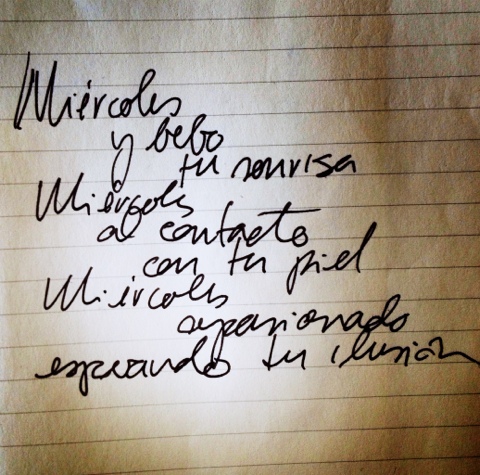 Miércoles
y bebo
tu sonrisa
Miércoles
al contacto
con tu piel
Miércoles
apasionado
esperando tu ilusión